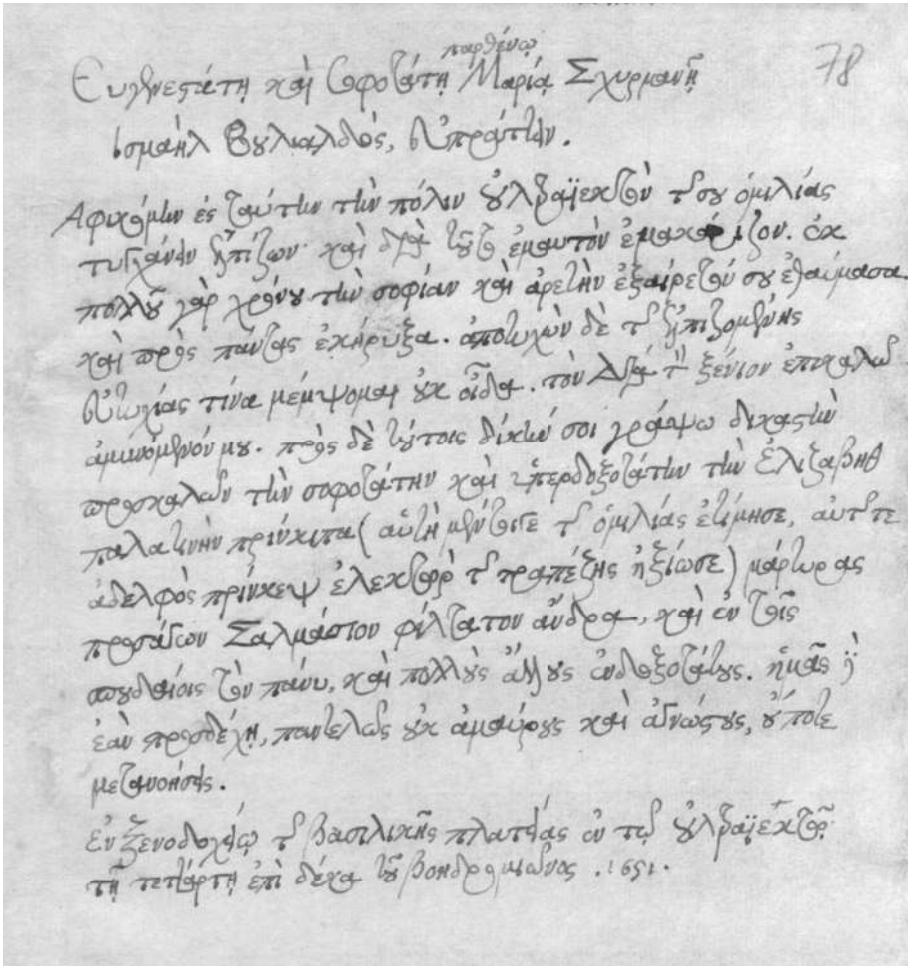 παρθένῳ
78
Εὐγενεστάτῃ καὶ σοφοτάτῃ Μαρίᾳ Σχυρμανῇ
Ἰσμαὴλ Βυλιαλδὸς, εὖ πράττειν.
Ἀφικόμην ἐς ταύτην τὴν πόλιν Οὐλτραϊεκτὸν τῆς σου ὁμιλίας
τυγχάνειν ἐλπίζων· καὶ διὰ τοῦτο ἐμαυτὸν ἐμακάριζον. ἐκ
πολλοῦ γὰρ χρόνου τὴν σοφίαν καὶ ἀρετὴν ἐξαίρετόν σου ἐθαύμασα
καὶ πρὸς πάντας ἐκήρυξα. ἀποτυχὼν δὲ τῆς ἐλπιζομένης
εὐτυχίας τίνα μέμψομαι οὐκ οἶδα. τὸν Δία τὸν ξένιον ἐπικαλῶ
ἀμυνόμενόν μου. πρὸς δὲ τούτοις δίκην σοι γράψω δικαστὴν
προσκαλῶν τὴν σοφοτάτην καὶ ὑπερδοξοτάτην τὴν Ἐλιζαβὴθ
παλατινὴν πρίνκιπα (αὐτὴ μέντοιγε τῆς ὁμιλίας ἐτίμησε, αὐτῆς τε
ἀδελφὸς πρίνκεψ ἐλεκτὸρ τῆς τραπέζης ἠξίωσε) μάρτυρας
προσάγων Σαλμάσιον φίλτατον ἄνδρα, καὶ ἐν τοῖς
σπουδαίοις τὸν πάνυ, καὶ πολλοὺς ἄλλους ἐνδοξοτάτους. ἡμᾶς δὲ
ἐὰν προσδέχῃ, παντελῶς οὐκ ἀμαύρους καὶ ἀγνώστους, οὔποτε
μετανοήσεις.
Ἐν ξενοδοχείῳ τῆς βασιλικῆς πλατείας ἐν τῷ Οὐλτραϊέκτῳ
τῇ τετάρτῃ ἐπὶ δέκα τοῦ βοηδρομιῶνος. 1651.